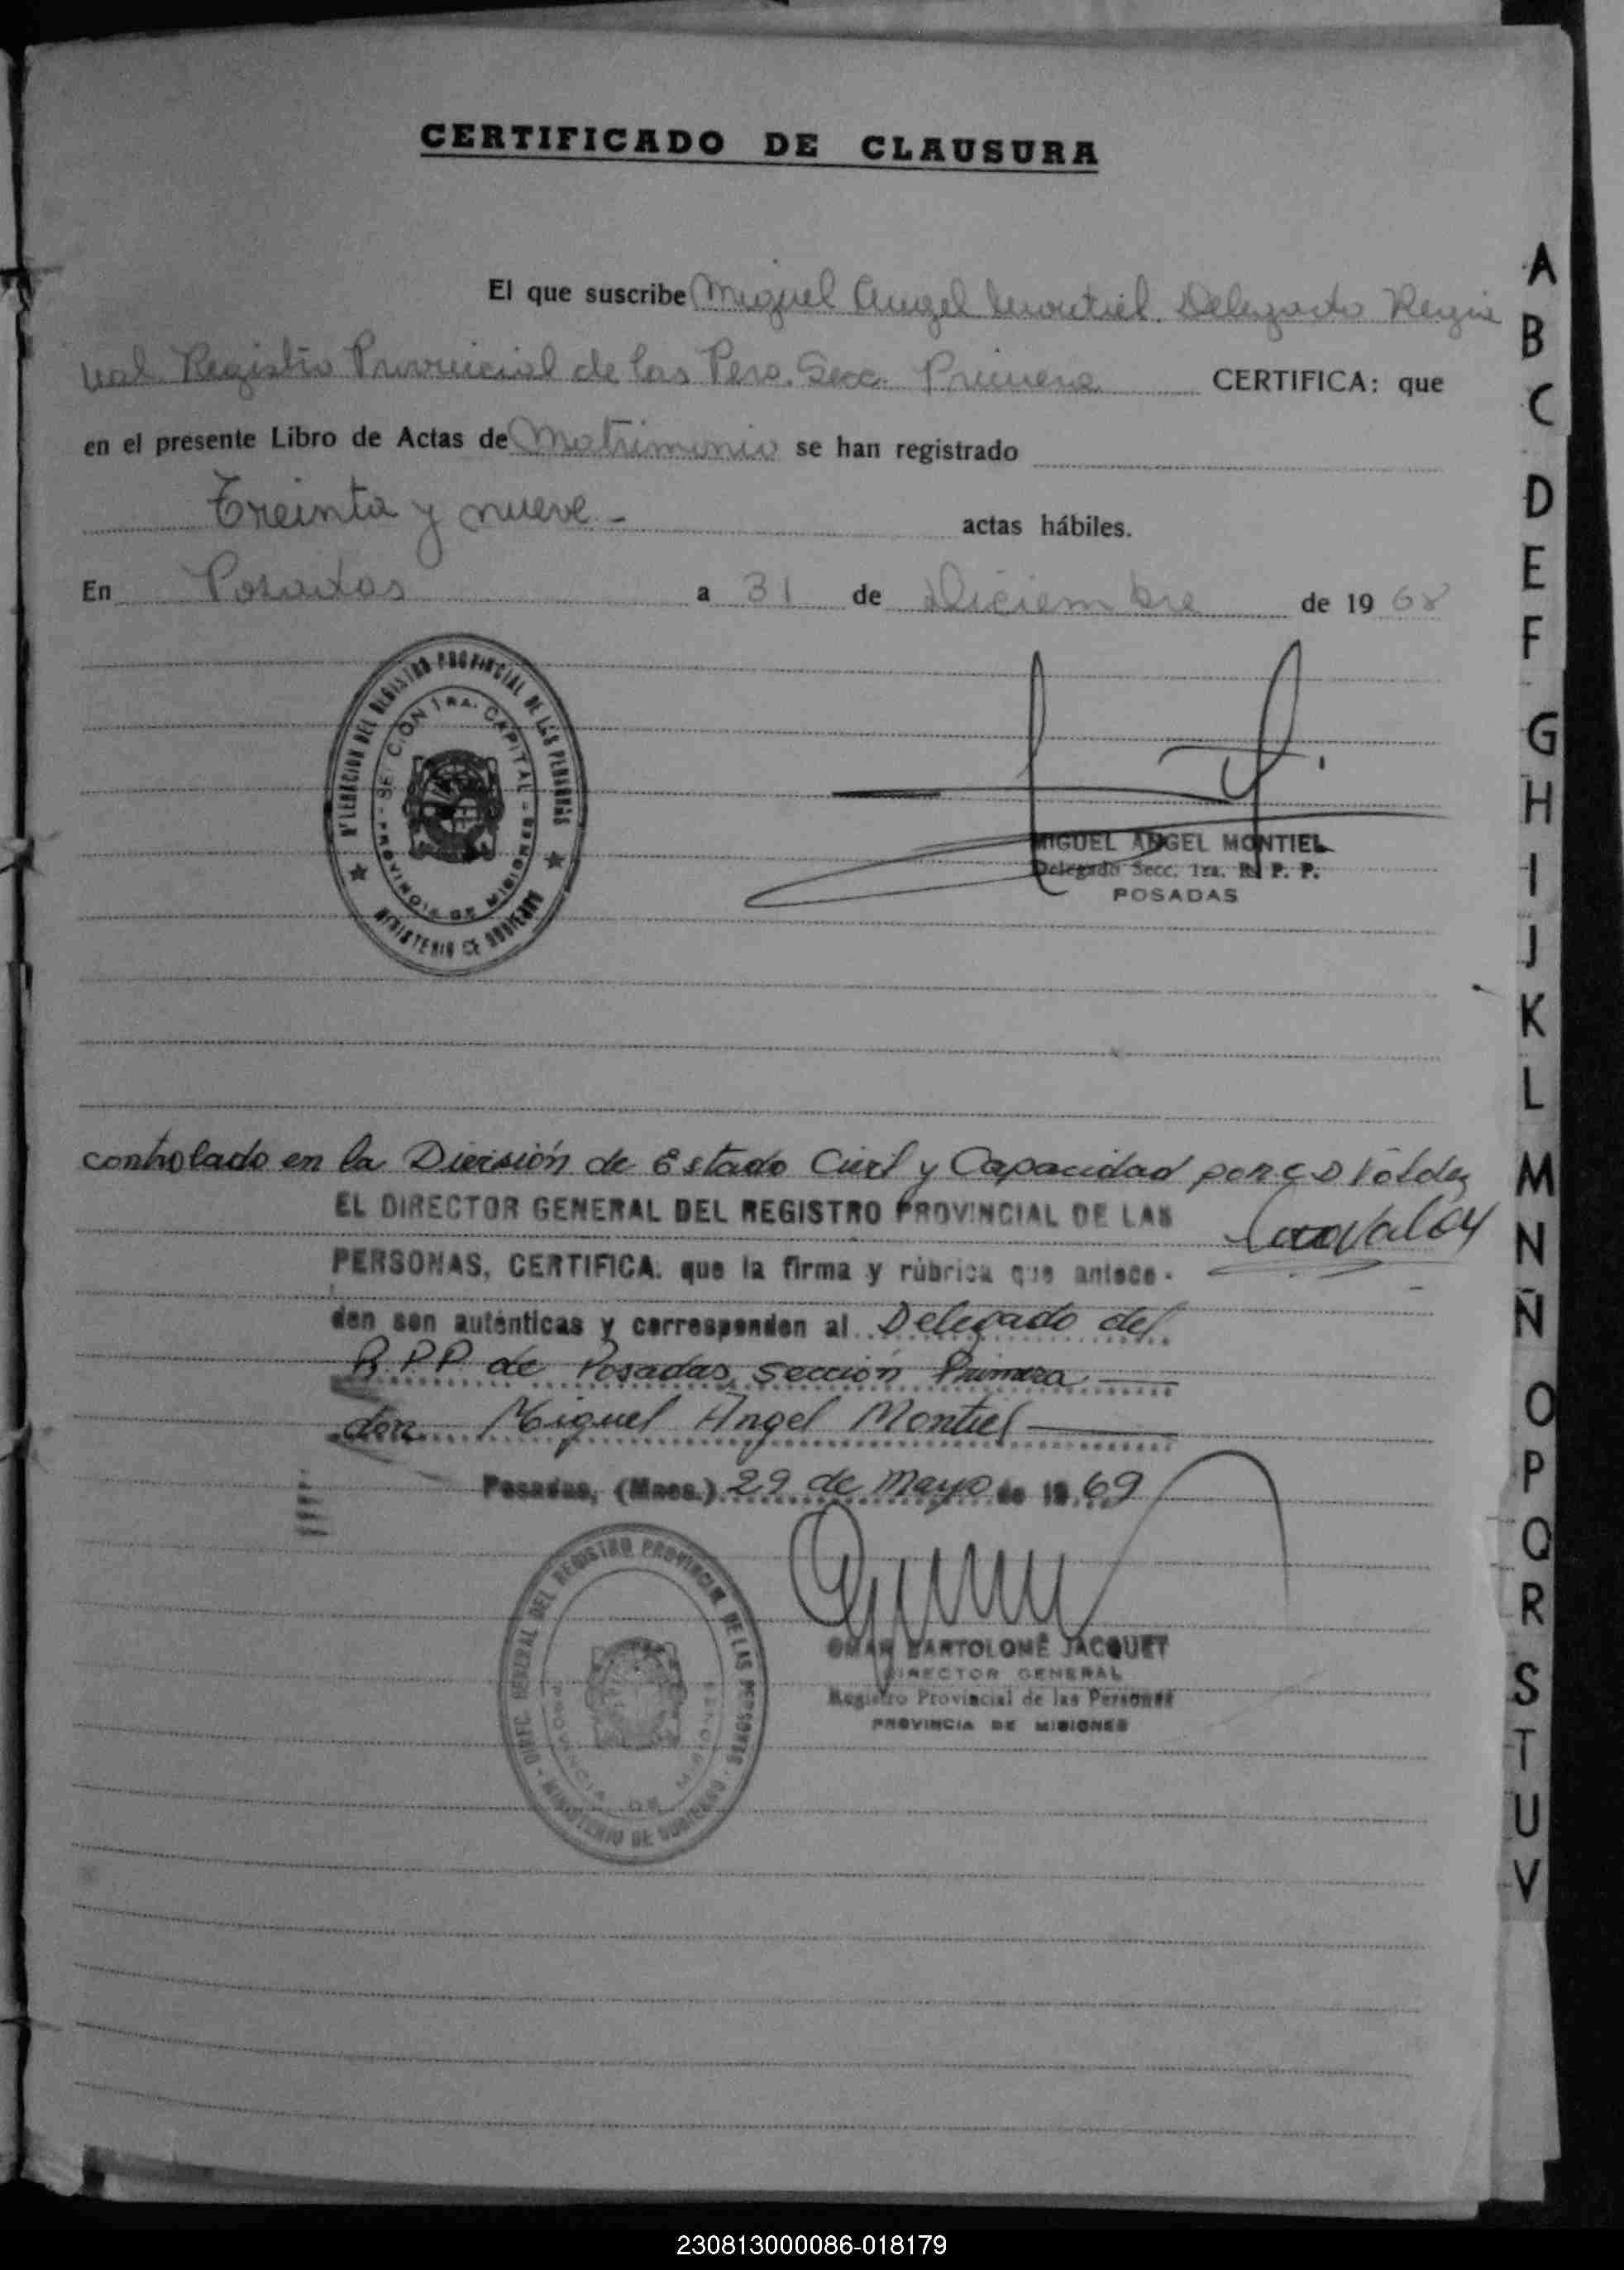 CERTIFICADO DE CLAUSURA
El que suscribe Miguel Angel Montiel Delegado Regio
nal Registro Provincial de las Pers. Secc. Primera CERTIFICA: que
en el presente Libro de Actas de Matrimonio se han registrado
Treinta y nueve - actas hábiles.
En Posadas a 31 de Diciembre de 1968
DELEGACION DEL REGISTRO PROVINCIAL DE LAS PERSONAS
SECCION 1RA. CAPITAL
PROVINCIA DE MISIONES
MINISTERIO DE GOBIERNO
MIGUEL ANGEL MONTIEL
Delegado Secc. 1ra. R. P. P.
POSADAS
controlado en la División de Estado Civil y Capacidad por
EL DIRECTOR GENERAL DEL REGISTRO PROVINCIAL DE LAS
PERSONAS, CERTIFICA. que la firma y rúbrica que antece-
den son auténticas y corresponden al Delegado del
R.P.P de Posadas, Sección Primera
don Miguel Angel Montiel
Posadas, (Mnes.) 29 de Mayo de 1969
DIREC. GENERAL DEL REGISTRO PROVINCIAL DE LAS PERSONAS
PROVINCIA DE MISIONES
MINISTERIO DE GOBIERNO
OMAR BARTOLOMÉ JACQUET
DIRECTOR GENERAL
Registro Provincial de las Personas
PROVINCIA DE MISIONES
A
B
C
D
E
F
G
H
I
J
K
L
M
N
Ñ
O
P
Q
R
S
T
U
V
230813000086-018179